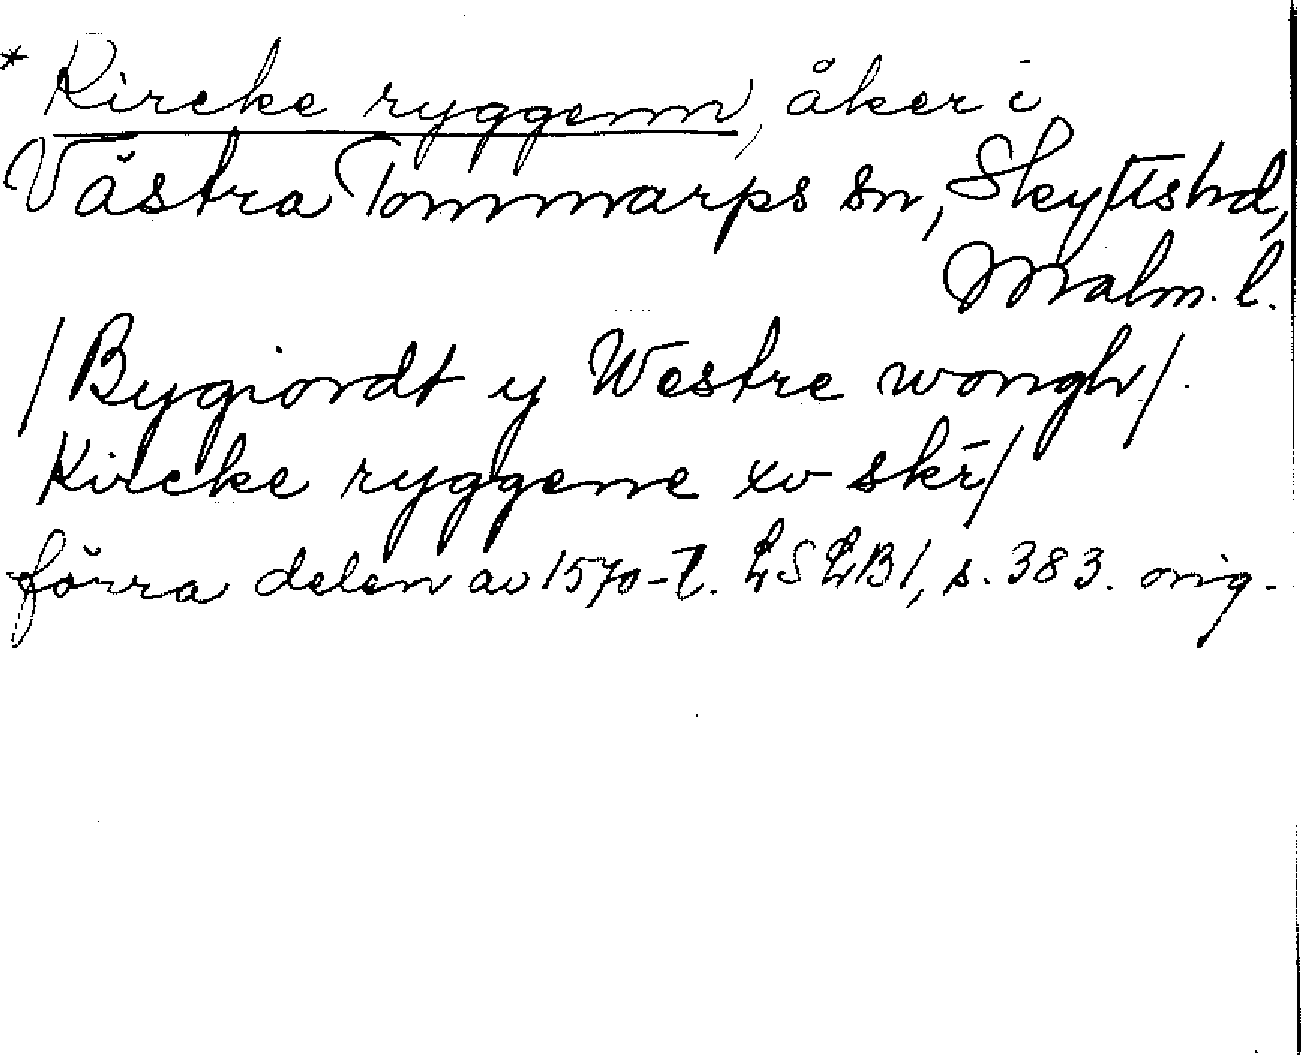 * Kircke ryggenn, åker i
Västra Tommarps sn, Skyttshd,
Malm. l.
/Bygiordt y Westre wongh/.
Kircke ryggene xv skr/
förra delen av 1570-t. LSLB1, s. 383. orig.